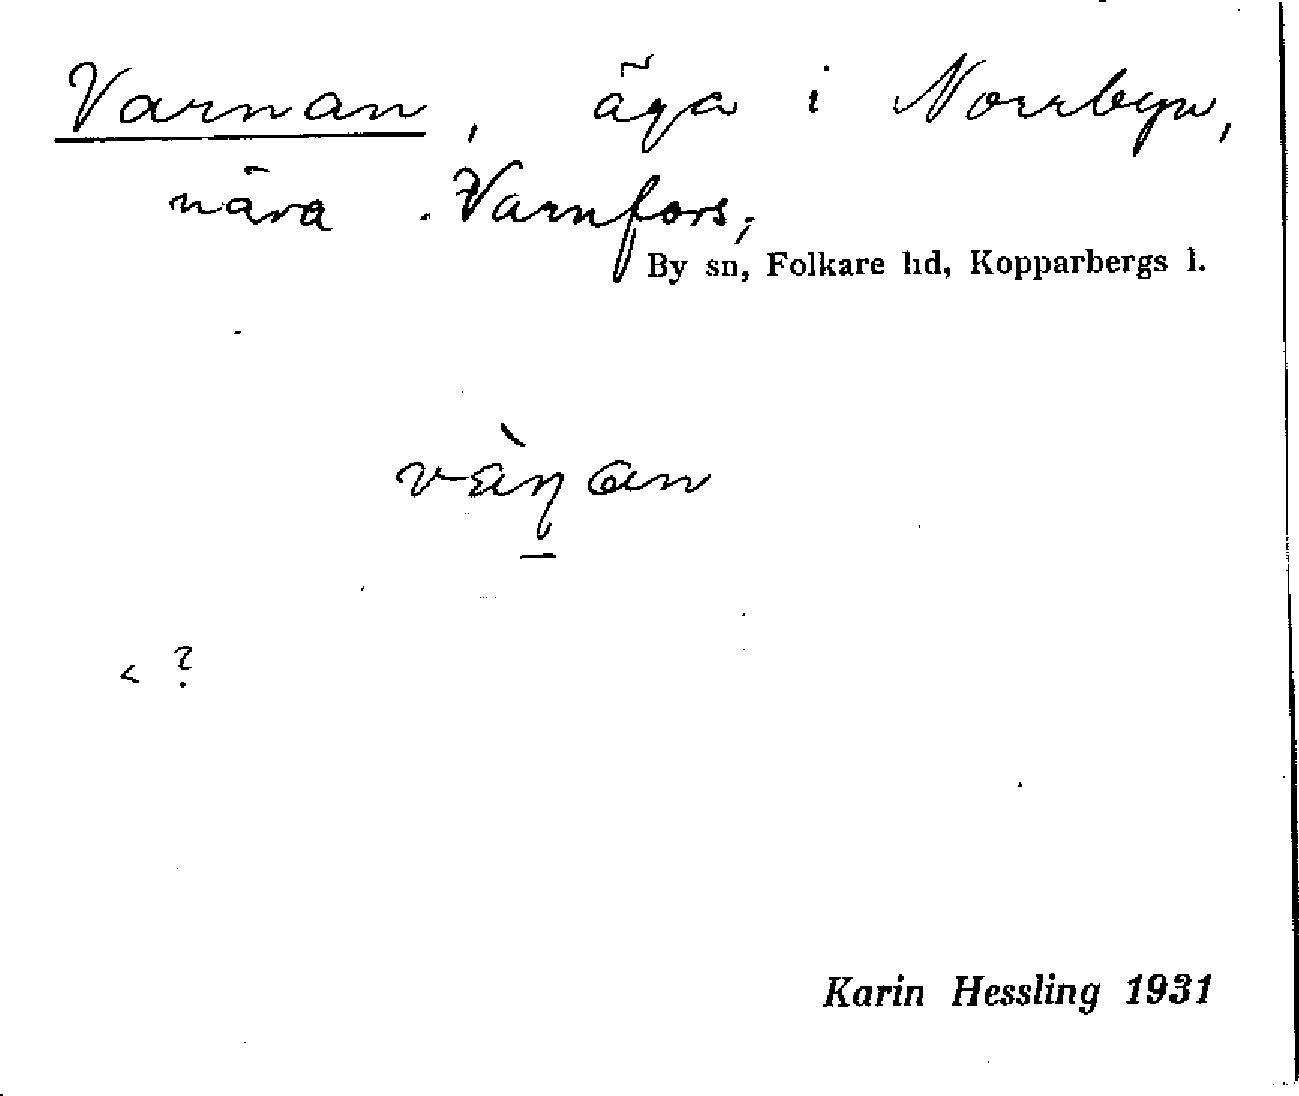 Varnan, äga i Norrbyn,
nära Varnfors,
By sn, Folkare hd, Kopparbergs l.
vàɳan
< ?
Karin Hessling 1931